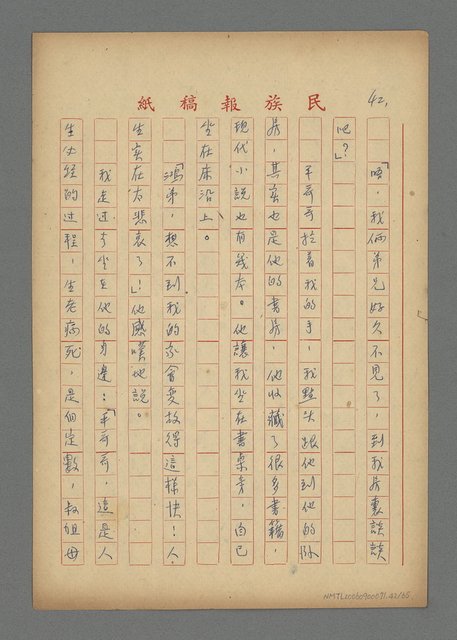 民族報稿紙
42.
「唔，我倆弟兄好久不見了，到我房裏談談
吧？」
平哥哥拉着我的手，我點头跟他到他的卧
房，其实也是他的書房，他收藏了很多書籍，
現代小說也有幾本。他讓我坐在書桌旁，自己
坐在床沿上。
「鴻弟，想不到我的家會变故得這樣快！人
生实在太悲哀了！」他感嘆地說。
我走过去坐在他的身邊：「平哥哥，這是人
生必經的过程，生老病死，是個定數，叔姐母
NMTL20060900071.42/65